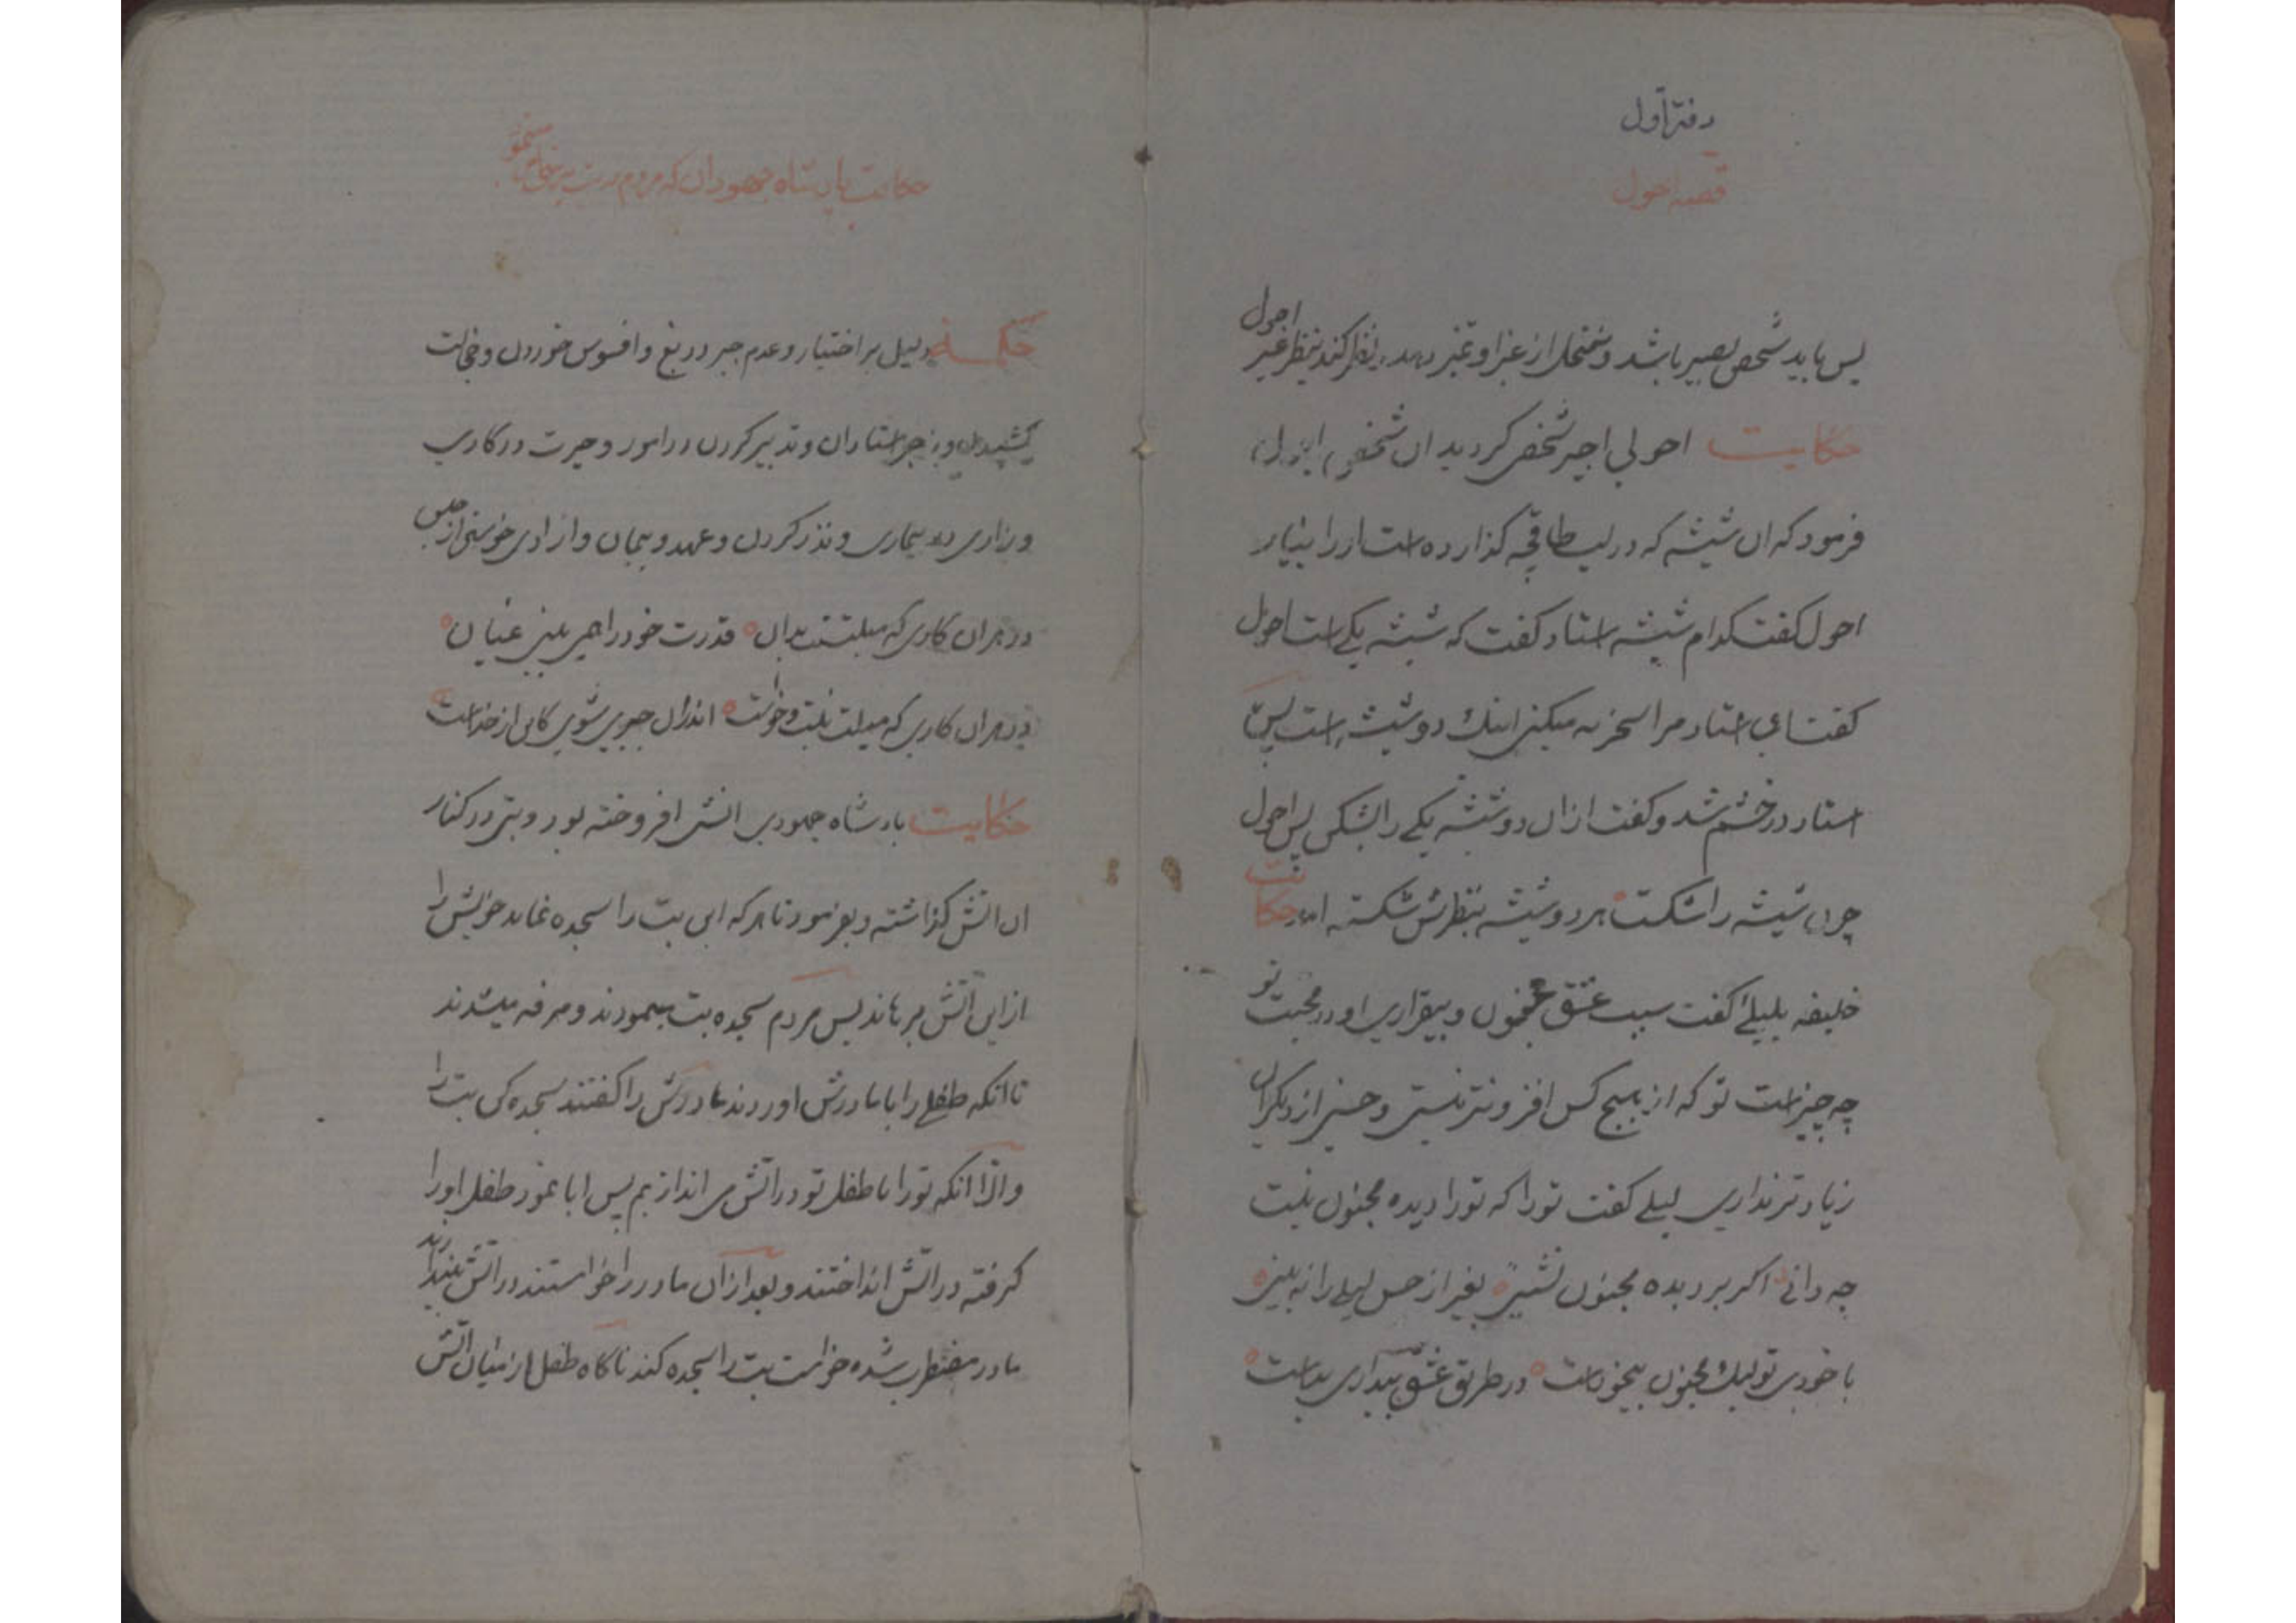 دفتر اول
قصه احول
پس باید شخص بصیر باشد و نظر کند بنظر غیر احول
حکایت احولی اجیر شخص کردید ان شخص
فرمود که ان شیشه که در لب طاقچه کذارده است انرا بیار
احول کفت کدام شیشه استاد کفت که شیشه یکی است احول
کفت ای استاد مرا سخریه میکنی اینك دو شیشه است پس
استاد در خشم شد و کفت از ان دو شیشه یکی را بشکن پس احول
چون شیشه را شکست هر دو شیشه بنظرش شکسته امد حکایت
خلیفه بلیلی کفت سبب عشق مجنون و بیقراری او در محبت تو
چه چیز است تو که از هیچ کس افزونتر نیستی و حسنی از دیکران
زیادتر نداری لیلی کفت تو را که تو را دیده مجنون نیست
چه دانی اکر بر دیده مجنون نشینی بغیر از حسن لیلی را نه بینی
با خودی تو لیك مجنون بیخود است در طریق عشق بیداری بد است
حکایت پادشاه جهودان که مردم
دلیل بر اختیار و عدم جبر دریغ و افسوس خوردن و خجالت
کشیدن و زجر استادان و تدبیر کردن در امور و حیرت در کاری
و زاری در بیماری و نذر کردن و عهد و پیمان و ازادی خواستن از حبس
در هر ان کاری که میلستت بدان قدرت خود را همی بینی عیان
در هر ان کاری که میلت نیست و خواست اندران جبری شوی کاین از خداست
حکایت پادشاه جهودی اتش افروخته بود و بتی در کنار
ان اتش کذاشته و بفرمود تا هر که این بت را سجده نماید خویش را
از این اتش برهاند پس مردم سجده بت مینمودند و مرفه میشدند
تا انکه طفلی را با مادرش اوردند مادرش را کفتند سجده کن بت را
والا انکه تو را با طفل تو در اتش می اندازیم پس ابا نمود طفل او را
کرفته در اتش انداختند و بعد از ان مادر را خواستند در اتش بیندازند
مادر مضطرب شده خواست بت را سجده کند ناکاه طفل از میان اتش